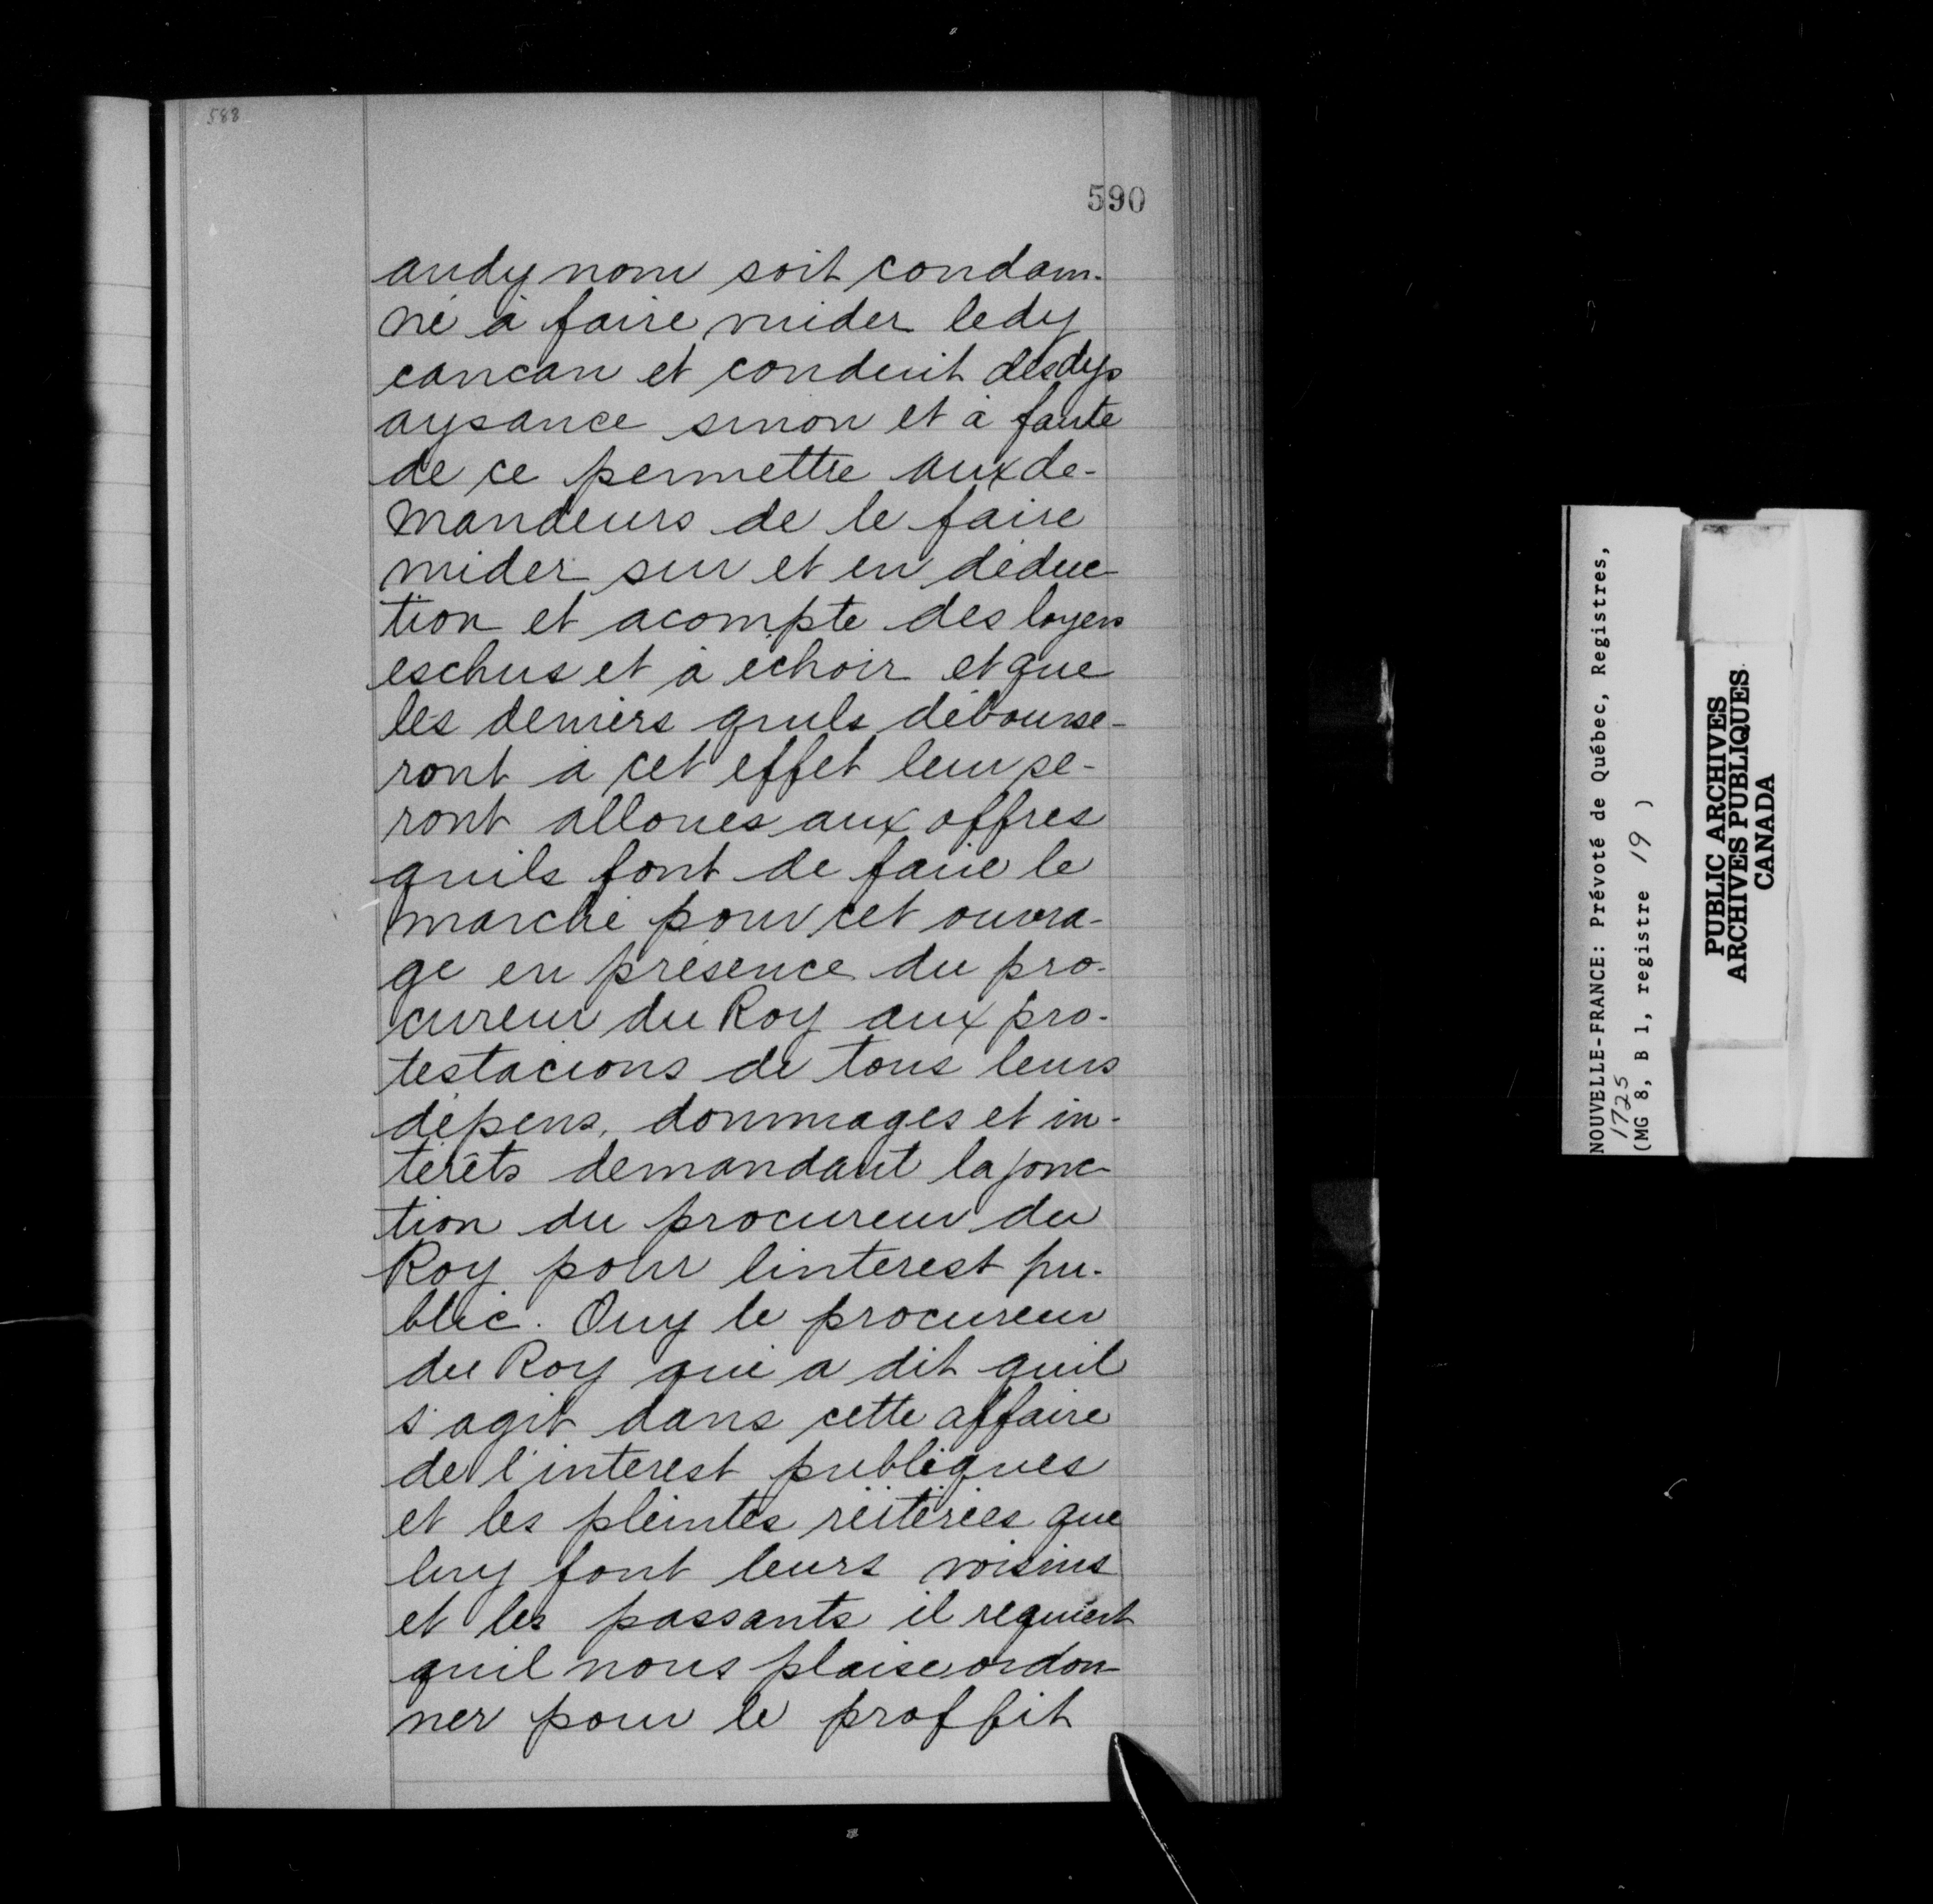 588
590
audy nom soit condam-
né à faire vuider ledy
cancan et conduit desdys
aysance sinon et à faute
de ce permettre aux de-
mandeurs de le faire
vuider sur et en déduc-
tion et acompte des loyers
eschus et à échoir et que
les deniers quils débourse-
ront à cet effet leur se-
ront alloués aux offres
quils font de faire le
marché pour cet ouvra-
ge en présence du pro-
cureur du Roy aux pro-
testacions de tous leurs
dépens, dommages et in-
térêts demandant la jonc-
tion du procureur du
Roy pour linterest pu-
blic. Ouy le procureur
du Roy qui a dit quil
s'agit dans cette affaire
de l'interest publiques
et les pleintes réiterées que
luy font leurs voisins
et les passants il requiert
quil nous plaise ordon-
ner pour le proffit
NOUVELLE-FRANCE: Prévoté de Québec, Registres,
1725
(MG 8, B 1, registre 19 )
PUBLIC ARCHIVES
ARCHIVES PUBLIQUES
CANADA